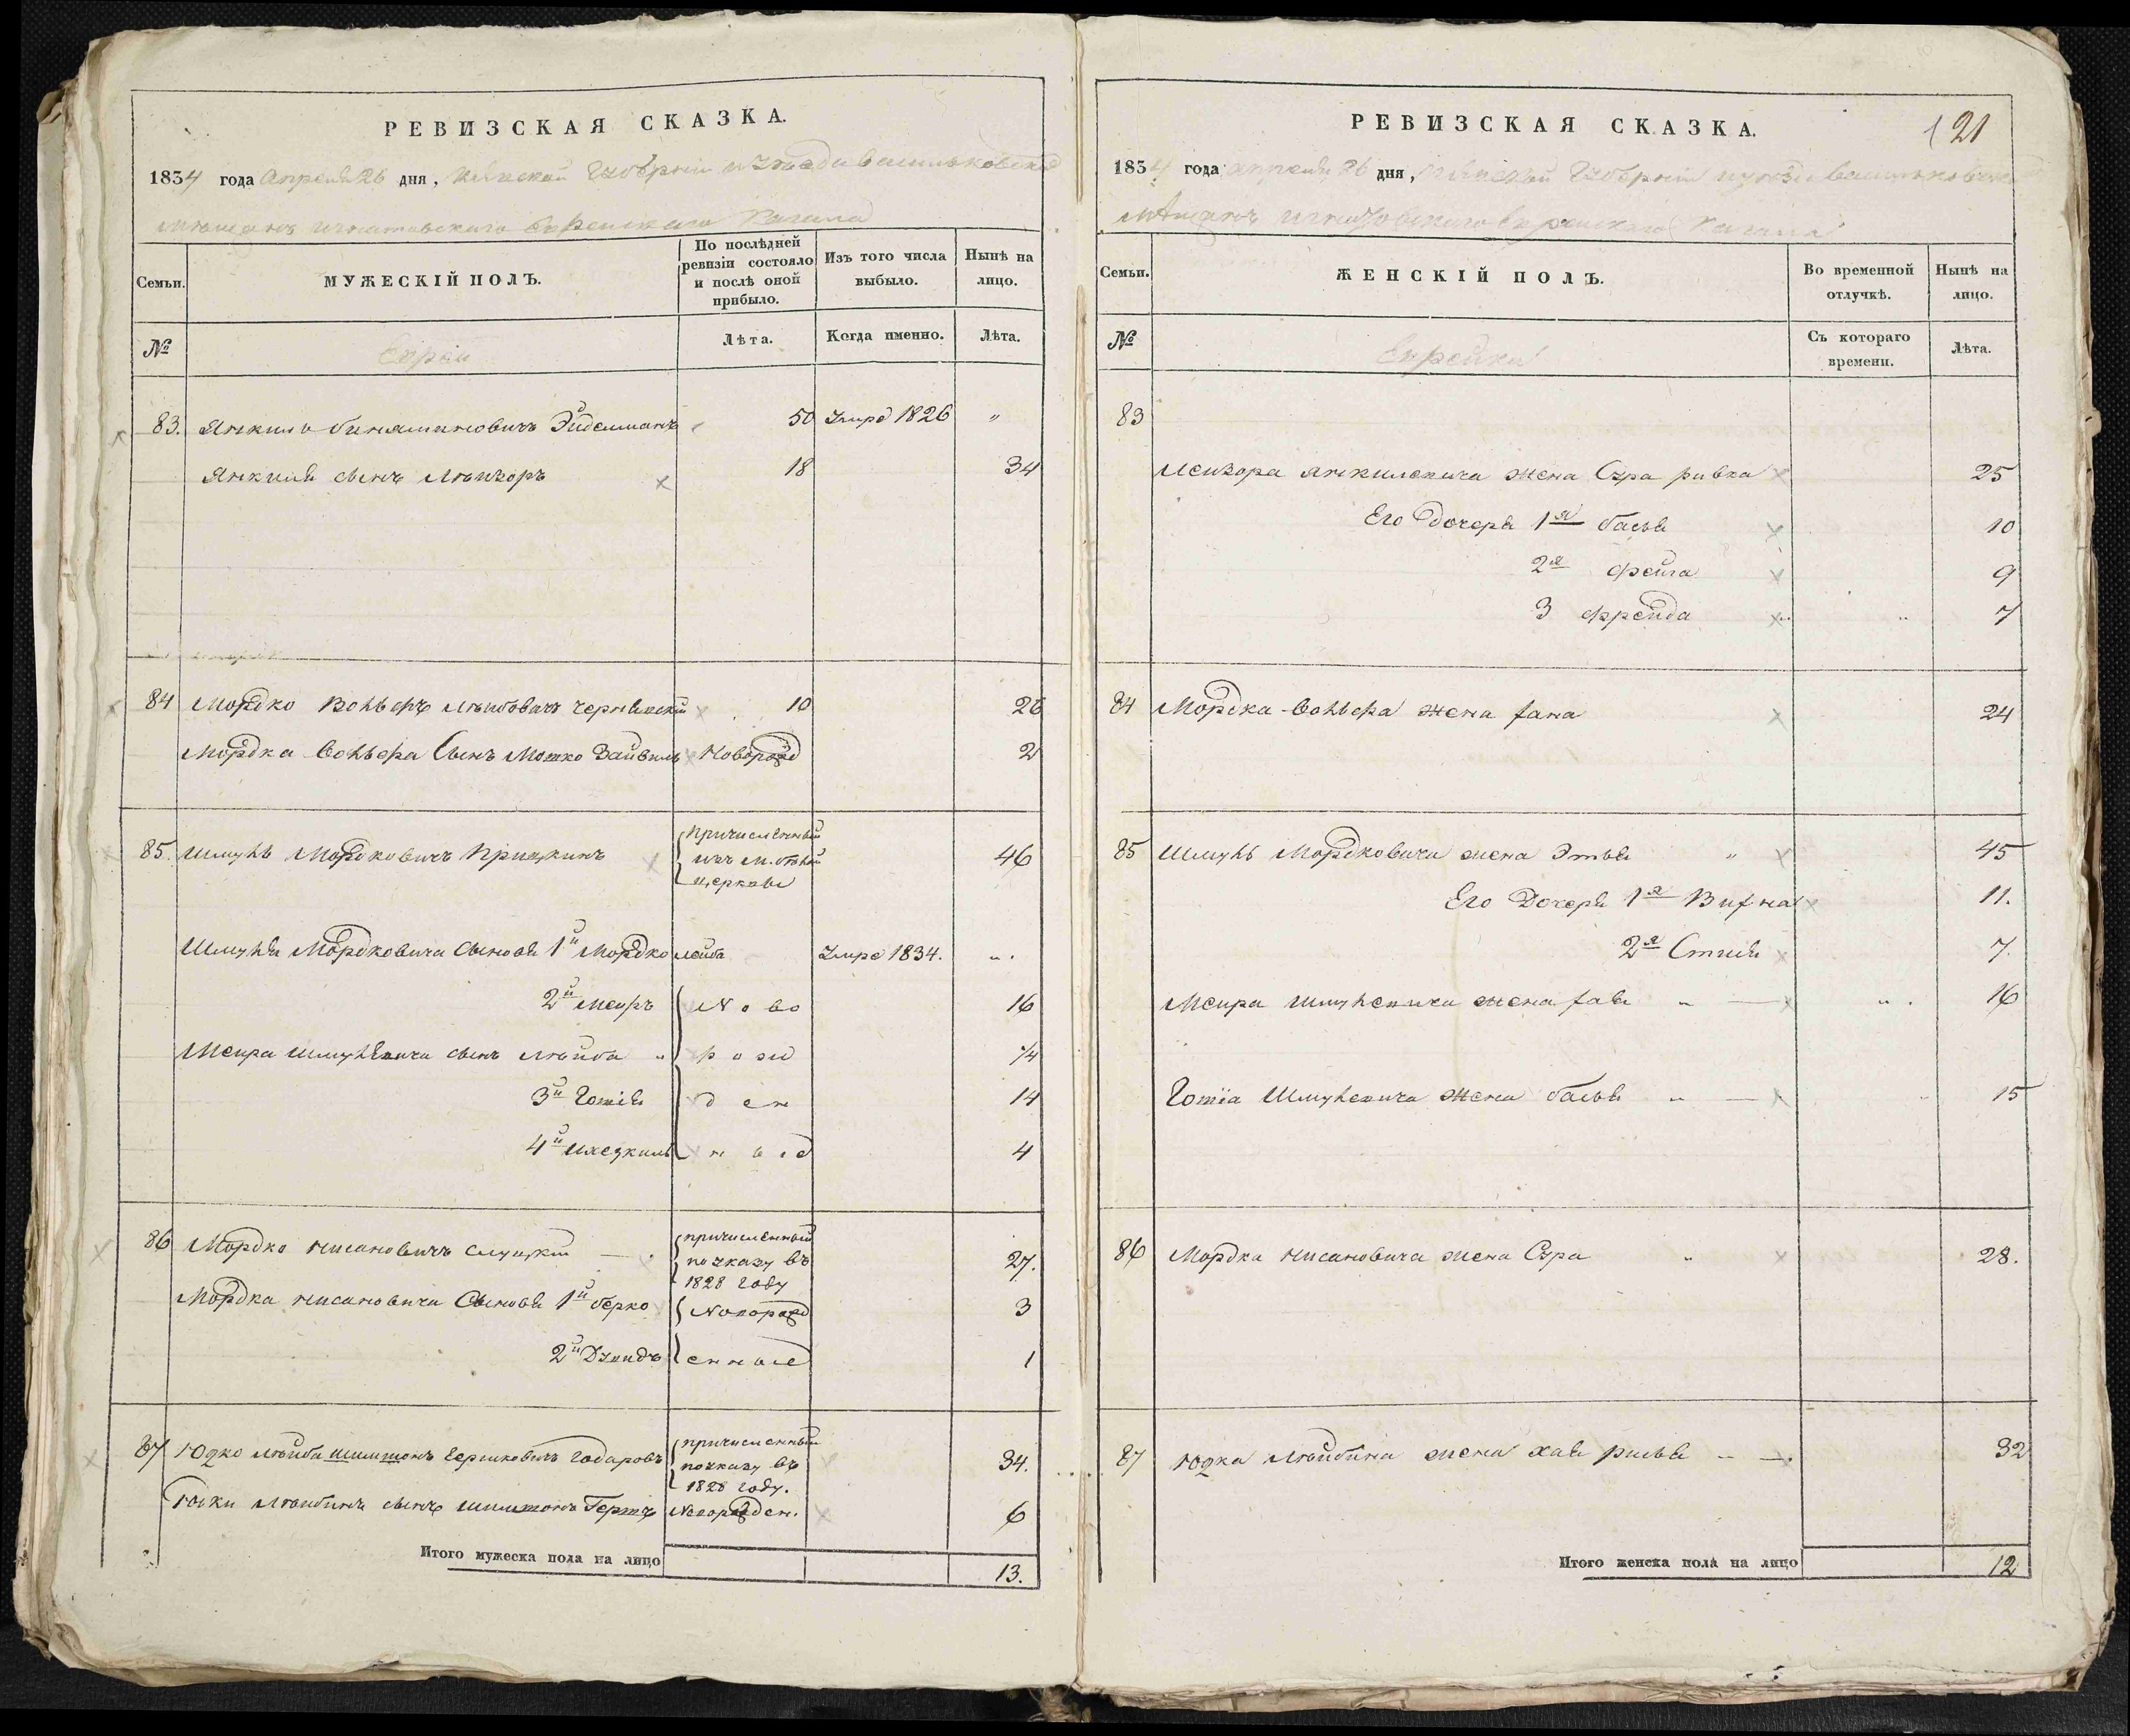 РЕВИЗСКАЯ СКАЗКА.
1834 года Апреля 26 дня, Киевской Губерніи и Уезда Васильковскаго
мѣщанъ Еврейскаго Кагала
Семьи.
МУЖЕСКІЙ ПОЛЪ.
По послѣдней ревизіи состояло и послѣ оной прибыло.
Изъ того числа выбыло.
Нынѣ на лицо.
№
Евреи
Лѣта.
Когда именно.
Лѣта.
83. Янкиль Биняминовичъ Эйдельманъ 50 Умре 1826 "
Янкиля сынъ Лейзоръ 18 34
84 Мордко Вольфъ Лейбовичъ 10 26
Мордка Вольфа Сынъ Мошко Зайвиль Новорожд 2
85. Шмуль Мордковичъ причисленный изъ м. бѣлой церкви 46
Шмуля Мордковича сыновя 1й Мордко лейба Умре 1834. "
2й Меиръ Ново 16
Меира Шмулевича сынъ Лейба " рож 1/4
3й ден 14
4й ныя 4
86 Мордко нисановичъ Слуцкій причисленный по указу въ 1828 году 27.
Мордка нисановича Сыновя 1й берко Новорожд 3
2й енные 1
87 Юдко Лейба Шимшонъ Гершковичъ причисленный по указу въ 1828 году. 34.
Юдки Лейбина сынъ Шимшонъ Новорожден. 6
Итого мужеска пола на лицо 13.
РЕВИЗСКАЯ СКАЗКА. 121
1834 года апреля 26 дня, Киевской Губерніи и уезда Васильковскаго
мѣщанъ еврейскаго Кагала
Семьи.
ЖЕНСКІЙ ПОЛЪ.
Во временной отлучкѣ.
Нынѣ на лицо.
№
Еврейки
Съ котораго времени.
Лѣта.
83
Лейзора Янкилевича жена Сура ривка 25
Его дочеря 1я басья 10
2я фейга 9
3 фрейда " 7
84 Мордка Вольфа жена хана 24
85 Шмуль Мордковича жена Этья " 45
Его Дочеря 1я 11.
2я 7.
Меира Шмулевича жена хая " " 16
Шмулевича жена басья " " 15
86 Мордка нисановича жена Сура " 28.
87 Юдка Лейбина жена хая 32
Итого женска пола на лицо 12